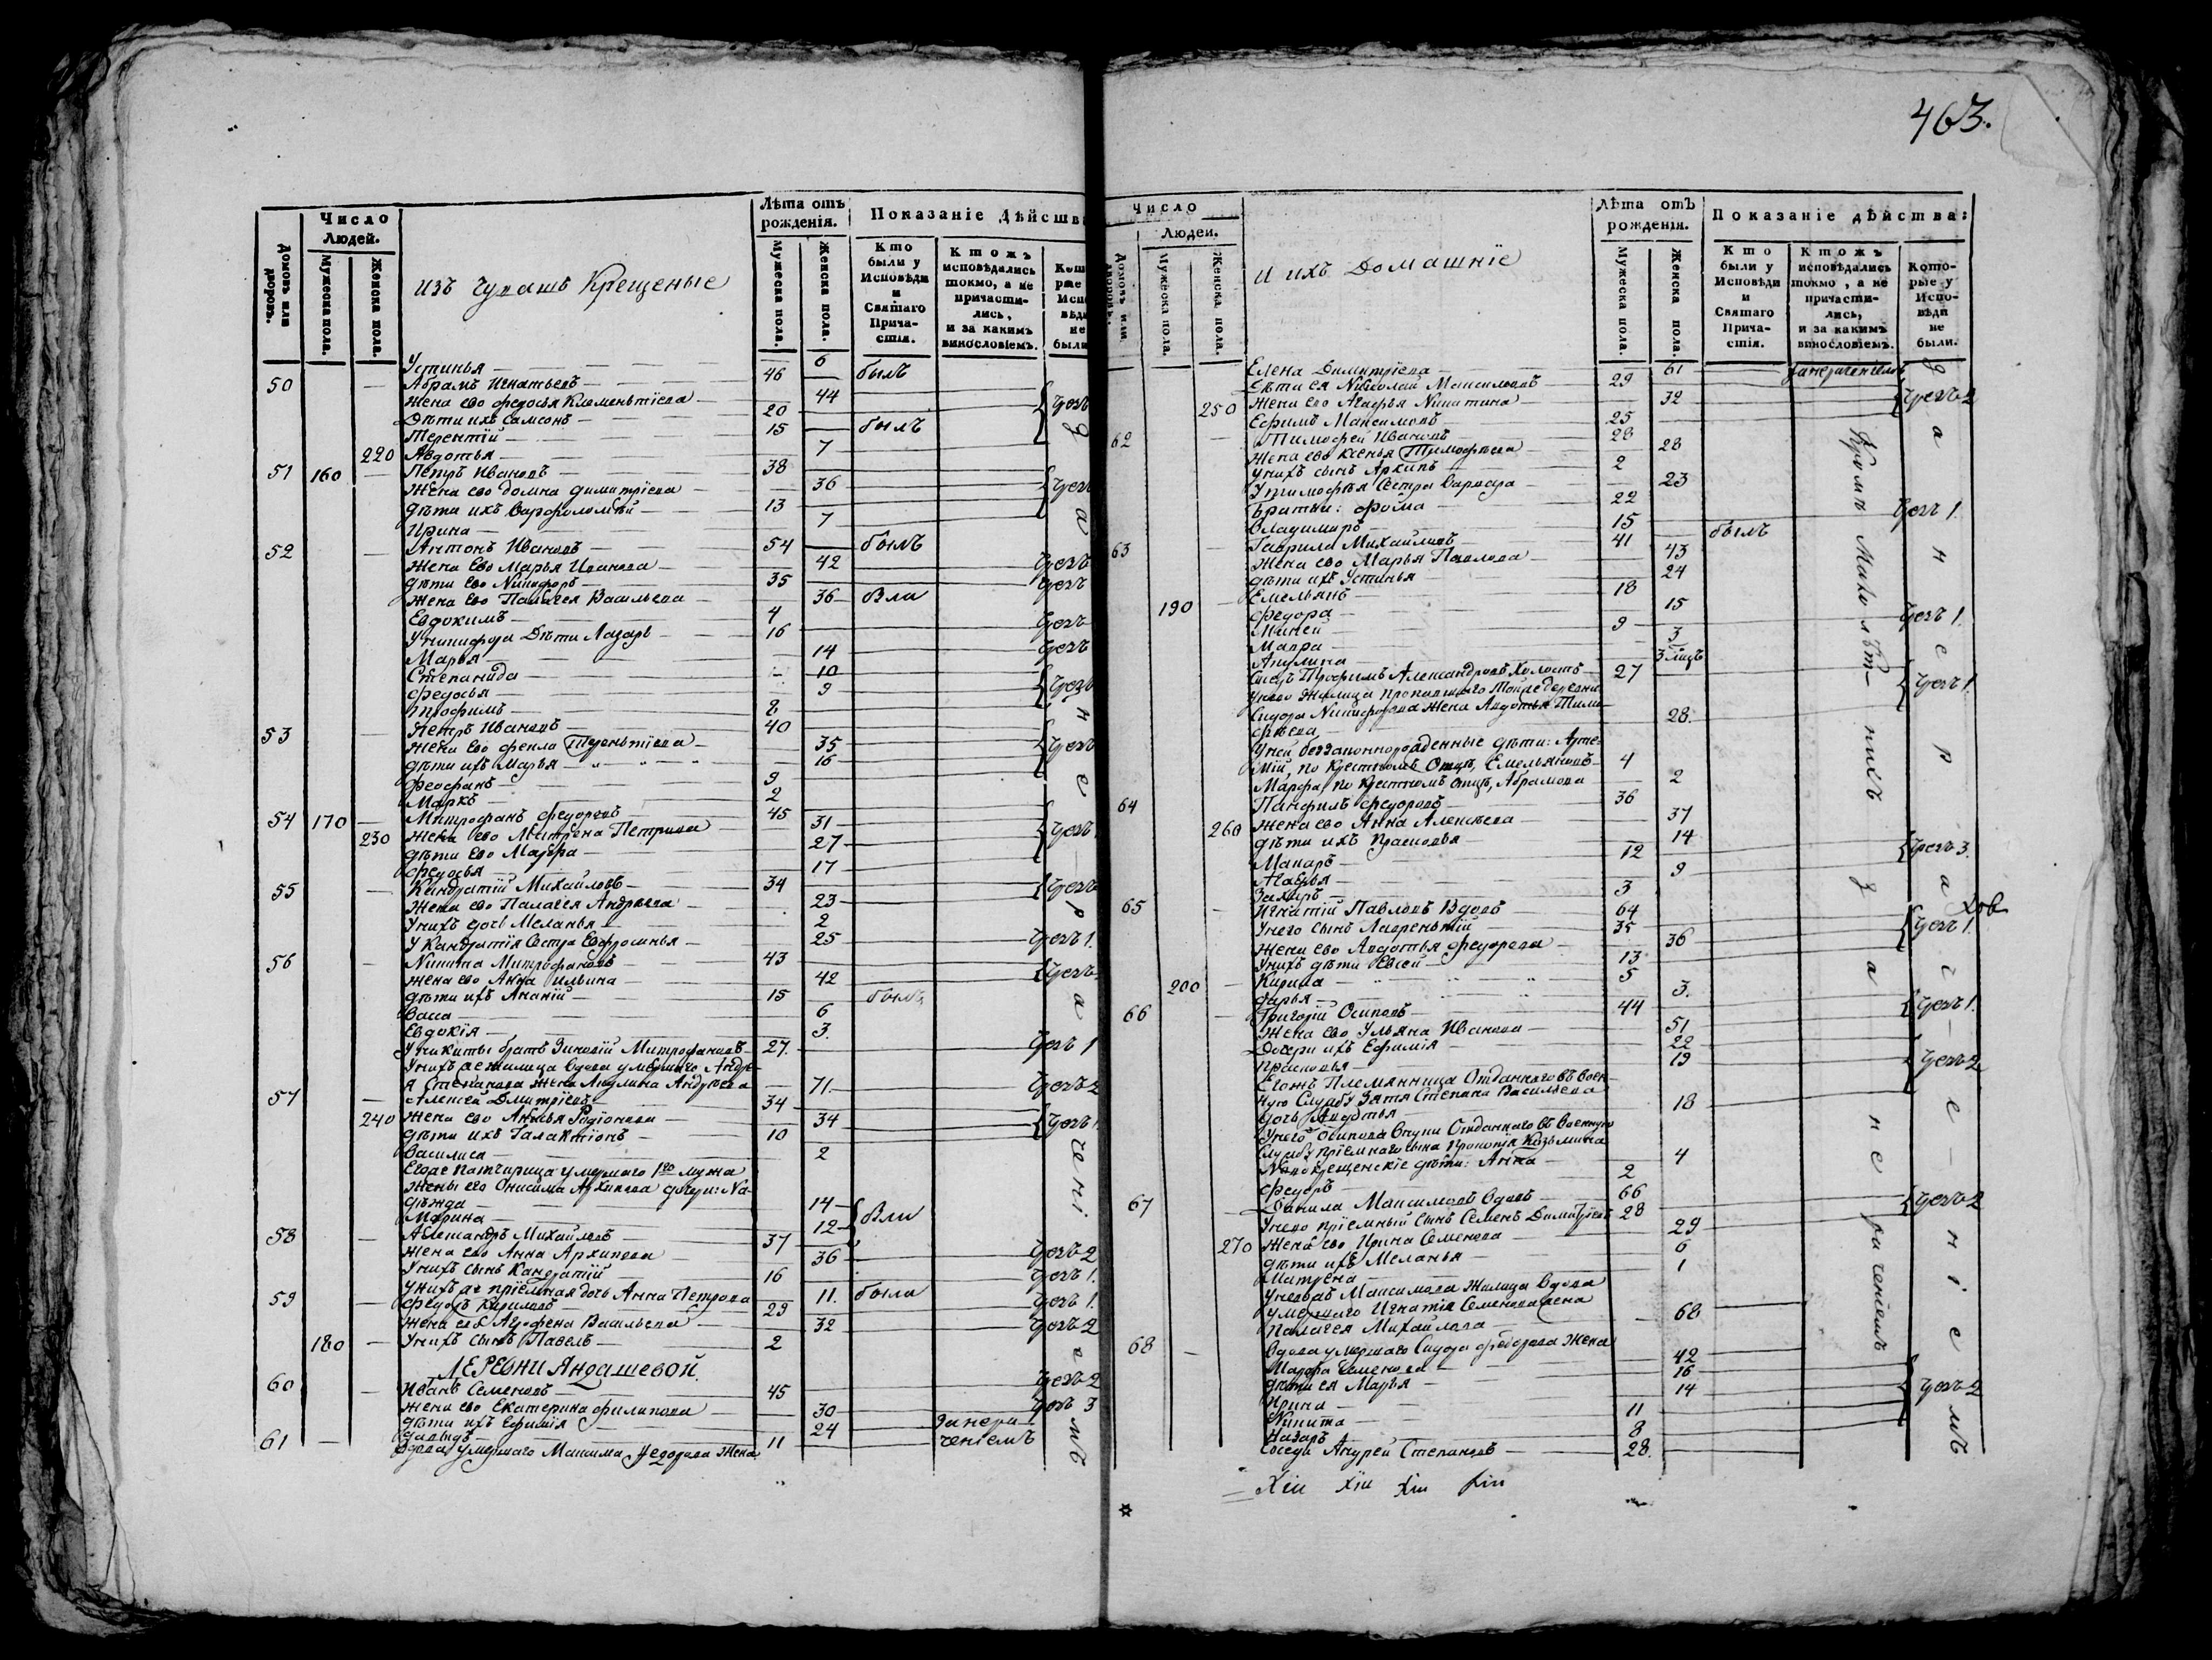 463.
Число Людей.
Лѣта отъ рожденія.
Показаніе дѣйства
Домовъ или дворовъ.
Мужеска пола.
Женска пола.
изъ Чувашъ Крещеные
Мужеска пола.
Женска пола.
Кто были у Исповѣди и Святаго Причастія.
Ктожъ исповѣдались токмо, а не причастились, и за какимъ винословіемъ.
Устинья 6
50 Абрамъ Игнатьевъ 46 былъ
жена его Федосья Клементіева 44
Дѣти ихъ Самсонъ 20
Терентій 15 былъ
220 Авдотья 7
51 160 Петръ Ивановъ 38
Жена его Домна Димитріева 36
дѣти ихъ Варфоломѣй 13
Ирина 7
52 Антонъ Ивановъ 54 былъ
Жена Его Марья Иванова 42
дѣти Его Никифоръ 35
Жена Его Палагея Васильева 36 Была
Евдокимъ 4
У Никифора Дѣти Лазарь 16
Марья 14
Степанида 10
Федосья 9
Трофимъ 8
53 Петръ Ивановъ 40
Жена Его Фекла Терентіева 35
дѣти ихъ Марья 16
Феофанъ 9
Маркъ 2
54 170 Митрофанъ Федоровъ 45
230 Жена его Матрена Петрова 31
дѣти Его Марфа 27
Федосья 17
55 Кандратій Михайловъ 34
Жена его Палагея Андреева 23
У нихъ дочь Меланья 2
У Кандратія Сестра Евфросинья 25
56 Никита Митрофановъ 43
Жена его Анна Ильина 42
дѣти ихъ Ананій 15 былъ
Васа 6
Евдокія 3.
У Никиты братъ Зиновій Митрофановъ 27.
У нихъ же жилица Вдова умершаго Андре-
я Степанова жена Акулина Андреева 71
57 Алексѣй Дмитріевъ 34
240 Жена его Авдотья Родіонова 34
дѣти ихъ Галактіонъ 10
Василиса 2
Егоже Патчирица умершаго 1го мужа
Жены его Онисима Архипова дочери: На-
дѣжда 14
Марина 12 Были
58 Александръ Михайловъ 37
Жена его Анна Архипова 36
У нихъ сынъ Кандратій 16
У нихъ же пріемная дочь Анна Петрова 11. была
59 Федоръ Кириловъ 29
Жена его Агрофена Васильева 32
180 У нихъ сынъ Павелъ 2
ДЕРЕВНИ Андашевой.
60 Иванъ Семеновъ 45
Жена его Екатерина Филипова 30
дѣти ихъ Ефимія 24 За нера-
Давыдъ 11 ченіемъ
61 Вдова умершаго Максима Федорова жена
Число Людей.
Домовъ или дворовъ.
Мужеска пола.
Женска пола.
и ихъ Домашніе
Лѣта отъ рожденія.
Мужеска пола.
Женска пола.
Показаніе дѣйства:
Кто были у Исповѣди и Святаго Причастія.
Ктожъ исповѣдались токмо, а не причастились, и за какимъ винословіемъ.
Которые у Исповѣди не были.
Елена Димитріева 61 за нераченіемъ
дѣти ея Николай Максимовъ 29
250 Жена его Агафья Никитина 32
Ефимъ Максимовъ 25
62 Тимофей Ивановъ 28
Жена его Ксенья Тимофѣева 28
У нихъ сынъ Архипъ 2
У Тимофѣя Сестра Варвара 23
Братья: Фома 22
Владимиръ 15 былъ
63 Гаврила Михайловъ 41
Жена его Марья Павлова 43
дѣти ихъ Устинья 24
190 Емельянъ 18
Федора 15
Миней 9
Мавра 3
Акулина 3 мѣсяцъ
Сосѣдъ Трофимъ Александровъ Холостъ 27
У него жилица пропавшаго тойже деревни
Сидора Никифорова жена Авдотья Тимо-
фѣева 28.
У ней беззаконнорожденные дѣти: Арте-
мій, по Крестномъ Отцѣ, Емельяновъ 4
Марфа, по Крестномъ отцѣ, Абрамова 2
64 Панфилъ Федоровъ 36
260 Жена его Анна Алексѣева 37
дѣти ихъ Прасковья 14
Макаръ 12
Агафья 9
Захаръ 3
65 Игнатій Павловъ Вдовъ 64
У него сынъ Лаврентій 35
Жена его Авдотья Федорова 36
У нихъ дѣти Евсей 13
200 Кирила 5
Дарья 3.
66 Григорій Осиповъ 44
Жена его Ульяна Иванова 51
Дочери ихъ Ефимія 22
Прасковья 19
Егожъ Племянница Отданнаго въ воен-
ную Службу Зятя Степана Васильева
дочь Авдотья 18
У него Осипова Внуки Отданнаго въ военную
Службу пріемнаго сына Прокопія Козьмина
Новокрещенскіе дѣти: Анна 4
Федоръ 2
67 Данила Максимовъ Вдовъ 66
У него пріемный сынъ Семенъ Димитріевъ 28
270 Жена его Ирина Семенова 29
дѣти ихъ Меланья 6
Матрена 1
У негожъ Максимова Жилица Вдова
умершаго Игнатія Семенова жена
Палагея Михайлова 68
68 Вдова умершаго Сидора Федорова Жена
Марфа Семенова 42
дѣти ея Марья 16
Ирина 14
Никита 11
Назаръ 8
Сосѣдъ Андрей Степановъ 28.
Кромѣ Малолѣтнихъ за нераченіемъ
за нераченіемъ